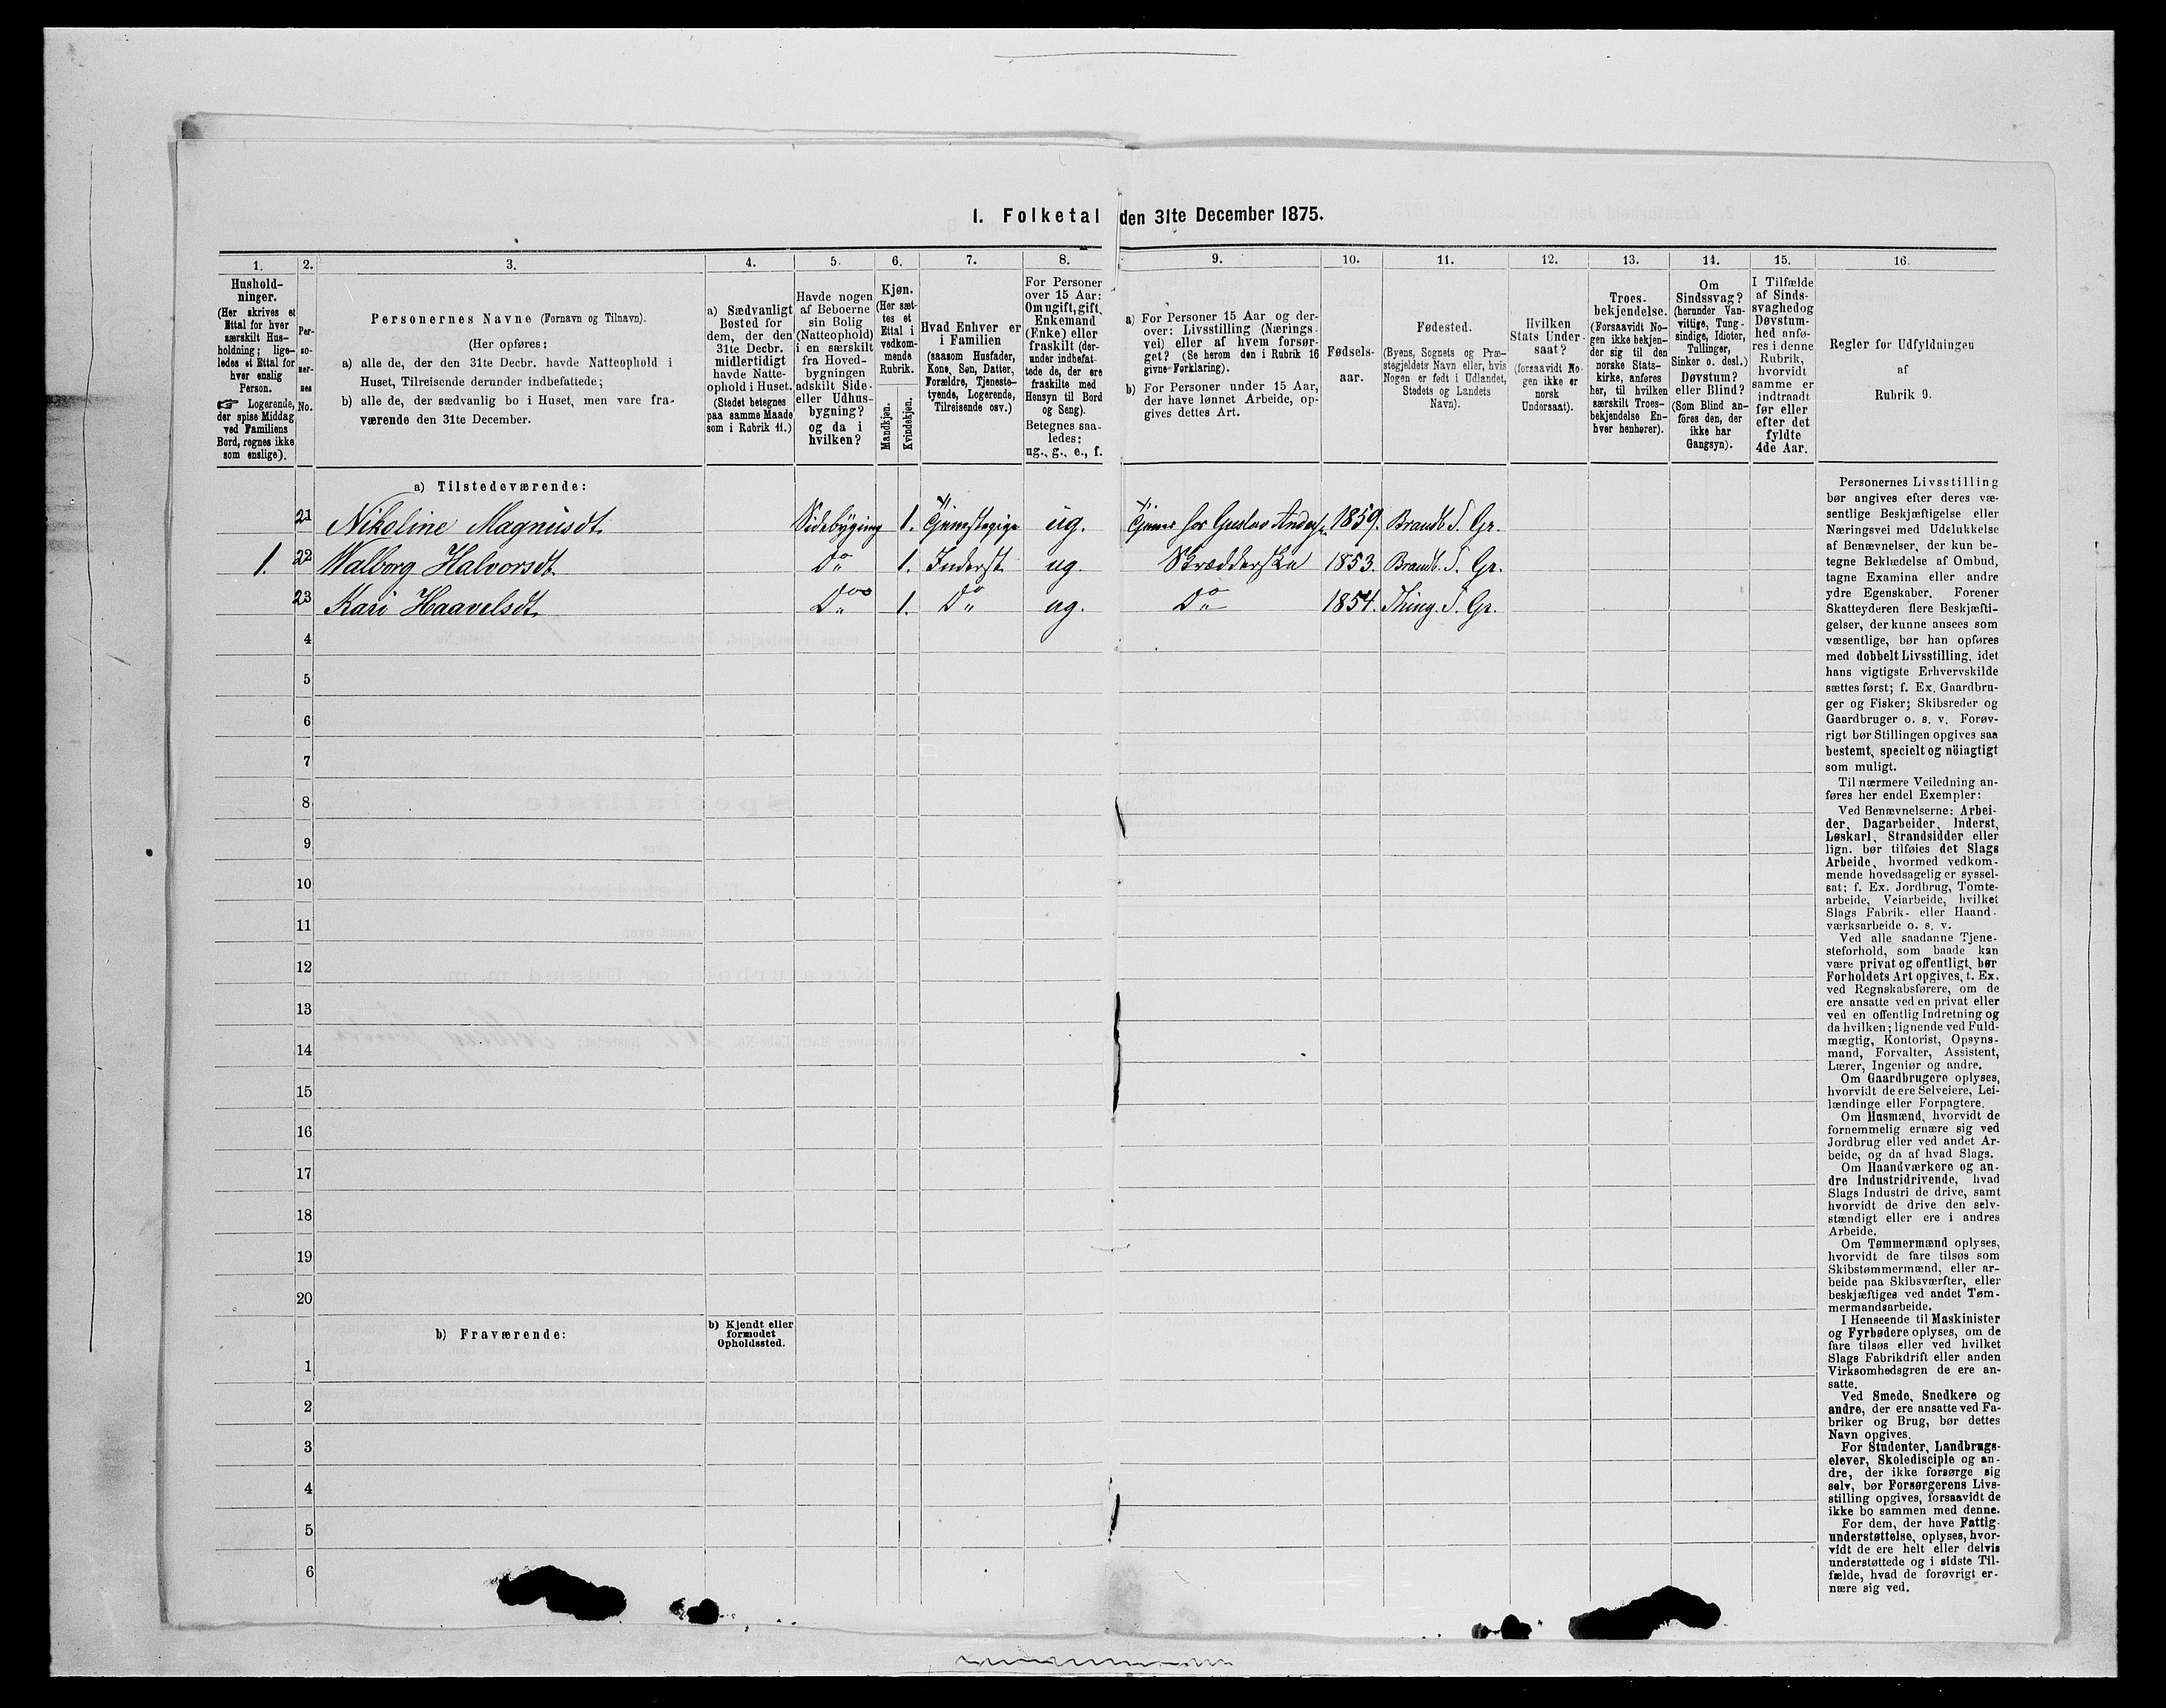 1. Folketal den 31te December 1875.
1. 2. 3. 4. 5. 6. 7. 8. 9. 10. 11. 12. 13. 14. 15. 16.
Hushold-
ninger.
(Her skrives et
Ettal for hver
særskilt Hus-
holdning; lige-
ledes et Ettal for
hver enslig
Person.
☞ Logerende,
der spise Middag
ved Familiens
Bord, regnes ikke
som enslige).
Per-
so-
ner-
nes
No.
Personernes Navne (Fornavn og Tilnavn).
(Her opføres:
a) alle de, der den 31te Decbr. havde Natteophold i
Huset, Tilreisende derunder indbefattede;
b) alle de, der sædvanlig bo i Huset, men vare fra-
værende den 31te December.
a) Sædvanligt
Bosted for
dem, der den
31te Decbr.
midlertidigt
havde Natte-
ophold i Huset.
(Stedet betegnes
paa samme Maade
som i Rubrik 11.)
Havde nogen
af Beboerne
sin Bolig
(Natteophold)
i en særskilt
fra Hoved-
bygningen
adskilt Side-
eller Udhus-
bygning?
og da i
hvilken?
Kjøn.
(Her sæt-
tes et
Ettal i
vedkom-
mende
Rubrik.
Mandkjøn.
Kvindekjøn.
Hvad Enhver er
i Familien
(saasom Husfader,
Kone, Søn, Datter,
Forældre, Tjeneste-
tyende, Logerende,
Tilreisende osv.)
For Personer
over 15 Aar:
Om ugift, gift,
Enkemand
(Enke) eller
fraskilt (der-
under indbefat-
tede de, der ere
fraskilte med
Hensyn til Bord
og Seng).
Betegnes saa-
ledes:
ug., g., e., f.
a) For Personer 15 Aar og der-
over: Livsstilling (Nærings-
vei) eller af hvem forsør-
get? (Se herom den i Rubrik 16
givne Forklaring).
b) For Personer under 15 Aar,
der have lønnet Arbeide, op-
gives dettes Art.
Fødsels-
aar.
Fødested.
(Byens, Sognets og Præ-
stegjeldets Navn eller, hvis
Nogen er født i Udlandet,
Stedets og Landets
Navn).
Hvilken
Stats Under-
saat?
(forsaavidt No-
gen ikke er
norsk
Undersaat).
Troes-
bekjendelse.
(Forsaavidt No-
gen ikke bekjen-
der sig til den
norske Stats-
kirke, anføres
her, til hvilken
særskilt Troes-
bekjendelse En-
hver henhører).
Om
Sindssvag?
(herunder Van-
vittige, Tung-
sindige, Idioter,
Tullinger,
Sinker o. desl.)
Døvstum?
eller Blind?
(Som Blind an-
föres den, der
ikke har
Gangsyn).
I Tilfælde
af Sinds-
svaghed og
Døvstum-
hed anfø-
res i denne
Rubrik,
hvorvidt
samme er
indtraadt
før eller
efter det
fyldte
4de Aar.
Regler for Udfyldningen
af
Rubrik 9.
a) Tilstedeværende:
21 Nikoline Magnusdt. Sidebyging 1. ug. Gustav 1859. Brandb. S. Gr.
1. 22 Walborg Halvorsdt. Do 1. Inderst ug. Skrædderske 1853. Brandb. S. Gr.
23 Kari Haavelsdt. Do 1. Do ug. Do 1854. Thing. S. Gr.
4
5
6
7
8
9
10
11
12
13
14
15
16
17
18
19
20
b) Fraværende:
b) Kjendt eller
formodet
Opholdssted.
1
2
3
4
5
6
Personernes Livsstilling
bør angives efter deres væ-
sentlige Beskjæftigelse eller
Næringsvei med Udelukkelse
af Benævnelser, der kun be-
tegne Beklædelse af Ombud,
tagne Examina eller andre
ydre Egenskaber. Forener
Skatteyderen flere Beskjæfti-
gelser, der kunne ansees som
væsentlige, bør han opføres
med dobbelt Livsstilling, idet
hans vigtigste Erhvervskilde
sættes først; f. Ex. Gaardbru-
ger og Fisker; Skibsreder og
Gaardbruger o. s. v. Forøv-
rigt bør Stillingen opgives saa
bestemt, specielt og nöiagtigt
som muligt.
Til nærmere Veiledning an-
føres her endel Exempler:
Ved Benævnelserne: Arbei-
der, Dagarbeider, Inderst,
Løskarl, Strandsidder eller
lign. bør tilføies det Slags
Arbeide, hvormed vedkom-
mende hovedsagelig er syssel-
sat; f. Ex. Jordbrug, Tomte-
arbeide, Veiarbeide, hvilket
Slags Fabrik- eller Haand-
værksarbeide o. s. v.
Ved alle saadanne Tjene-
steforhold, som baade kan
være privat og offentligt, bør
Forholdets Art opgives, t. Ex.
ved Regnskabsførere, om de
ere ansatte ved en privat eller
ved en offentlig Indretning og
da hvilken; lignende ved Fuld-
mægtig, Kontorist, Opsyns-
mand, Forvalter, Assistent,
Lærer, Ingeniør og andre.
Om Gaardbrugere oplyses,
hvorvidt de ere Selveiere, Lei-
lændinge eller Forpagtere.
Om Husmænd, hvorvidt de
fornemmelig ernære sig ved
Jordbrug eller ved andet Ar-
beide, og da af hvad Slags.
Om Haandværkere og an-
dre Industridrivende, hvad
Slags Industri de drive, samt
hvorvidt de drive den selv-
stændigt eller ere i andres
Arbeide.
Om Tømmermænd oplyses,
hvorvidt de fare tilsøs som
Skibstømmermænd, eller ar-
beide paa Skibsværfter, eller
beskjæftiges ved andet Tøm-
mermandsarbeide.
I Henseende til Maskinister
og Fyrbødere oplyses, om de
fare tilsøs eller ved hvilket
Slags Fabrikdrift eller anden
Virksomhedsgren de ere an-
satte.
Ved Smede, Snedkere og
andre, der ere ansatte ved Fa-
briker og Brug, bør dettes
Navn opgives.
For Studenter, Landbrugs-
elever, Skoledisciple og an-
dre, der ikke forsørge sig
selv, bør Forsørgerens Livs-
stilling opgives, forsaavidt de
ikke bo sammen med denne.
For dem, der have Fattig-
understøttelse, oplyses, hvor-
vidt de ere helt eller delvis
understøttede og i sidste Til-
fælde, hvad de forøvrigt er-
nære sig ved.